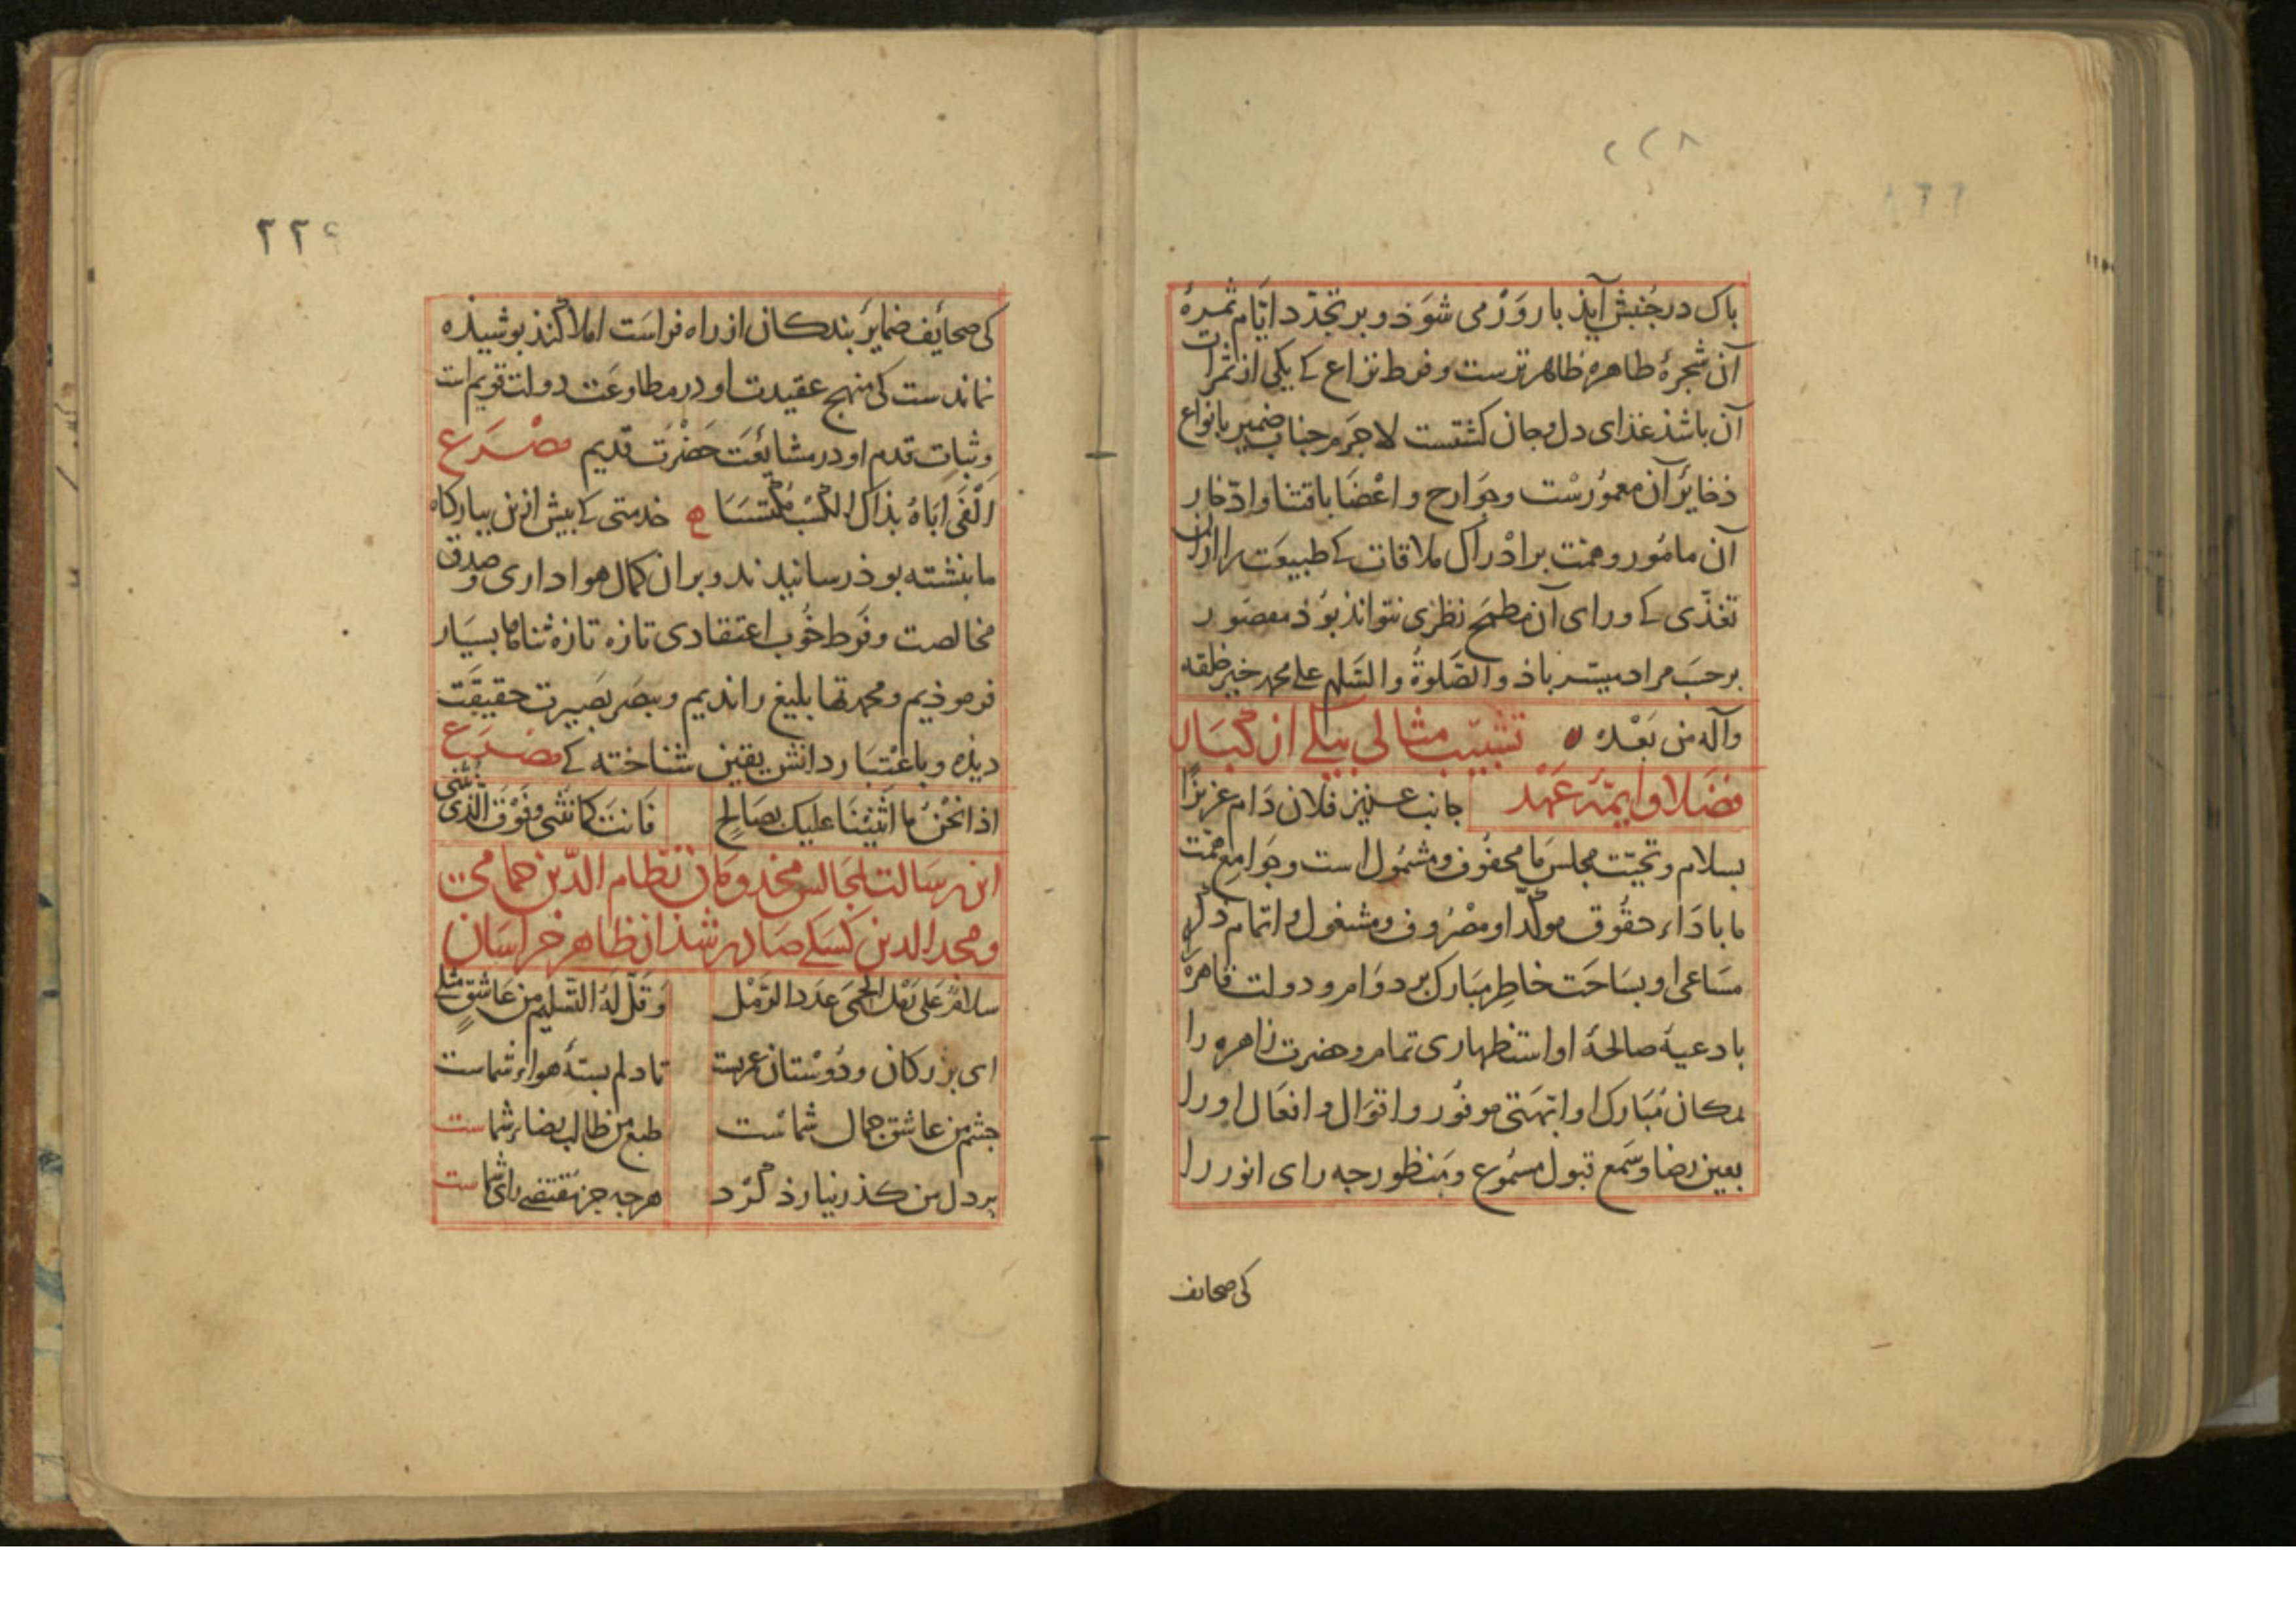 ٢٢٨
باک در جنبش آیذ بارورْ می شوَذ و بر تجدّد ایّام ثمرۀ
آن شجرۀ طاهره ظاهرترست و فرط نزاع کے یکی از ثمرات
آن باشذ غذای دل و جان کشتست لاجرَم جناب ضمیر بانواع
ذخایر آن معمُورسْت و جَوارح و اعْضَا باقتنا و ادّخار
آن مامُور و همت بر ادْراک ملاقات کے طبیعَت را از ان
تغذّی کے ورای آن مطمَح نظری نتواند بوُذ مقصَور
بر حسَب مراد میسّر باذ والصَّلوةُ والسَّلم علی محمد خیر خلقه
وآله من بَعْده تشبیب مثالی بیکے از کبار
فضلا و ایمّۀ عَهْد جانب عزیز فلان دَام عزیزًا
بسلام و تحیّت مجلس ما محفُوف و مشمُول است و جَوامع همّت
ما باداء حقُوق موکّد او مصْرُوف و مشغول و اتمام ذکر
مسَاعی او بسَاحَت خاطِر مبَارک بر دوَام و دولت قاهرَۀ را
بادعیۀ صالحۀ او استظهاری تمام و حضرت زاهره را
بمکان مُبَارک او ابّهَتی موفُور و اقوَال و افعَال او را
بعین رضا و سَمع قبول مسمُوع و مَنظور جه رای انور را
کی صحایف
٢٢٩
کی صحائف ضمایر بندکان از راه فراسَت املا کند بوشیذه
نماندست کی منهج عقیدت او در مطاوعَت دولت قویم است
و ثبات قدم او در مشایعَت حَضْرَت قدیم مصْرَع
اَلْفَی اَبَاهُ بذاک الکسْب مُکتسَبَا خدمتی کے بیش ازین ببارکاه
ما بنشته بوذ رسانیدند و بر ان کمال هواداری و صدق
مخالصت و فَرط خُوب اعتقادی تازه تازه ثناها بسیَار
فرموذیم و محمدتها بلیغ راندیم و ببصَر بَصیرت حقیقَت
دیذه و باعْتبَار دانش یقین شناخته کے مصْرَع
اذا نحْنُ اَثْنَیْنَا علیک بصَالحٍ فَانتَ کمَا نُثنی وفَوْقَ الَّذی نُثنی
این رسَالت بمجالس مخدومان نظام الدّین حمامی
و مجد الدین کسکے صادر شذ از ظاهر خراسَان
سلامٌ عَلی اَهْل الحمَی عَدد الرَّمْل وَقَلَّ لَهُ التَّسلیم من عَاشقٍ مثلی
ای بزرکان و دُوسْتان عریست تا دلم بستۀ هواء شماست
جشم من عاشق جمال شمائست طبع من طالب رضاء شماست
بر دل من کذر نیارذ کرد هرجه جز مقتضی رای شماست